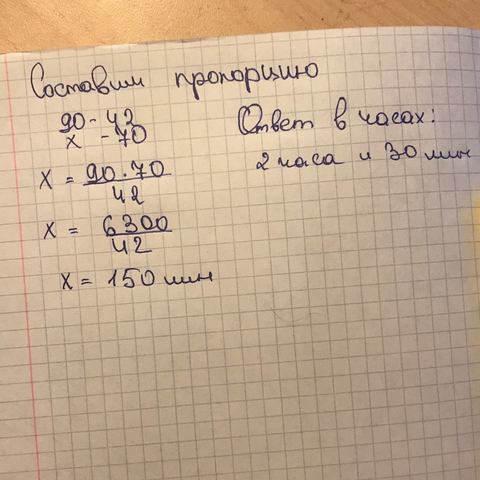 Составим пропорцию
90 - 42
x - 70
x = 90·70
42
x = 6300
42
x = 150 мин
Ответ в часах:
2 часа и 30 мин